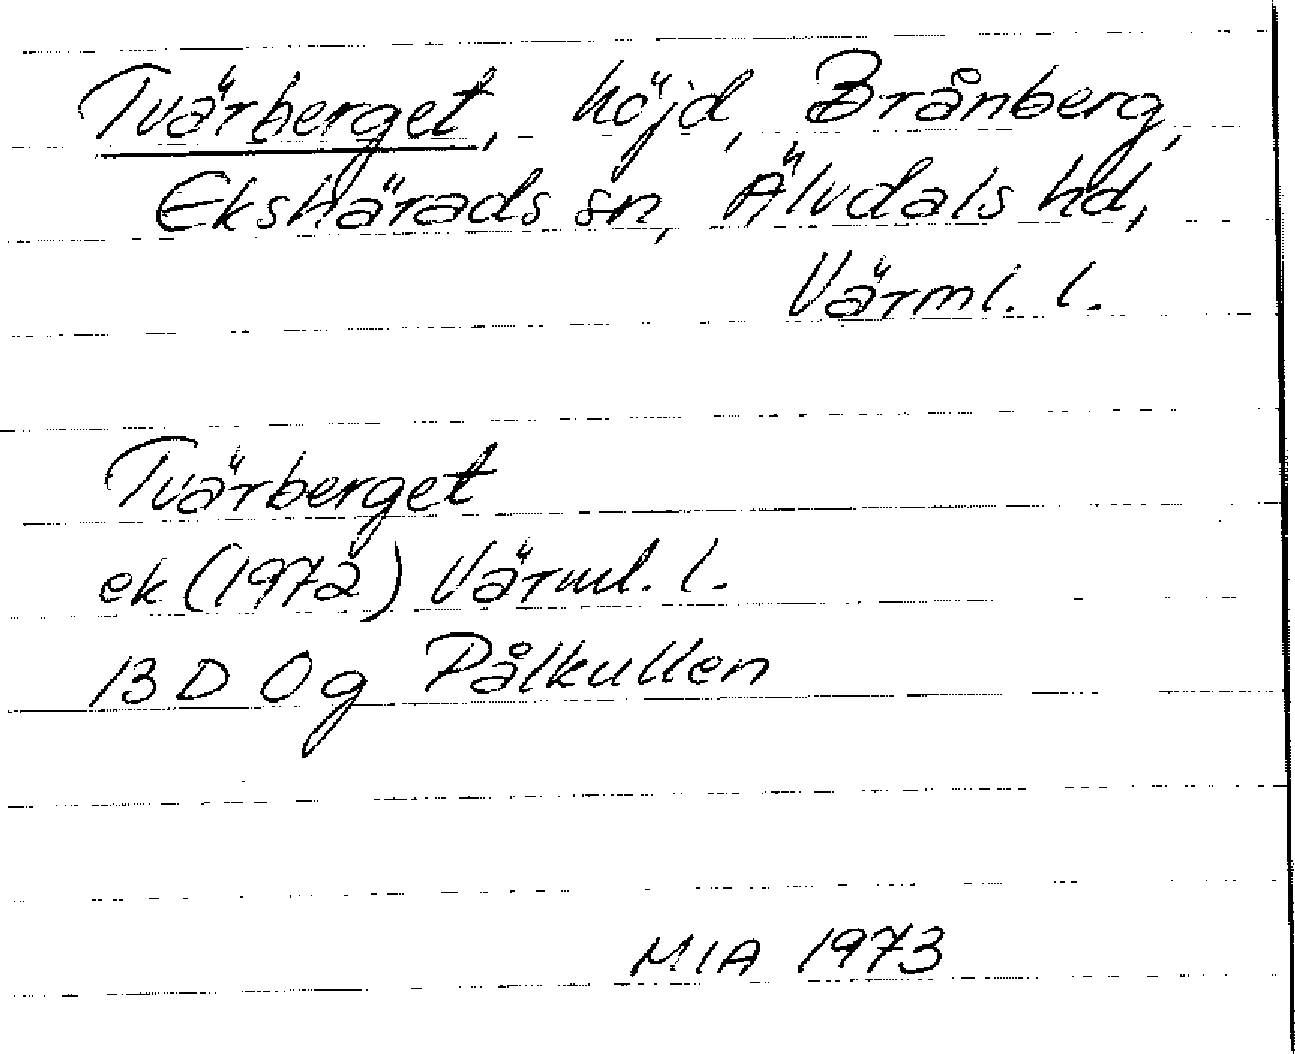 Tvärberget, höjd, Brånberg,
Ekshärads sn, Älvdals hd,
Värml. l.
Tvärberget
ek (1972) Värml. l.
13 D 0 g Pålkullen
MIA 1973